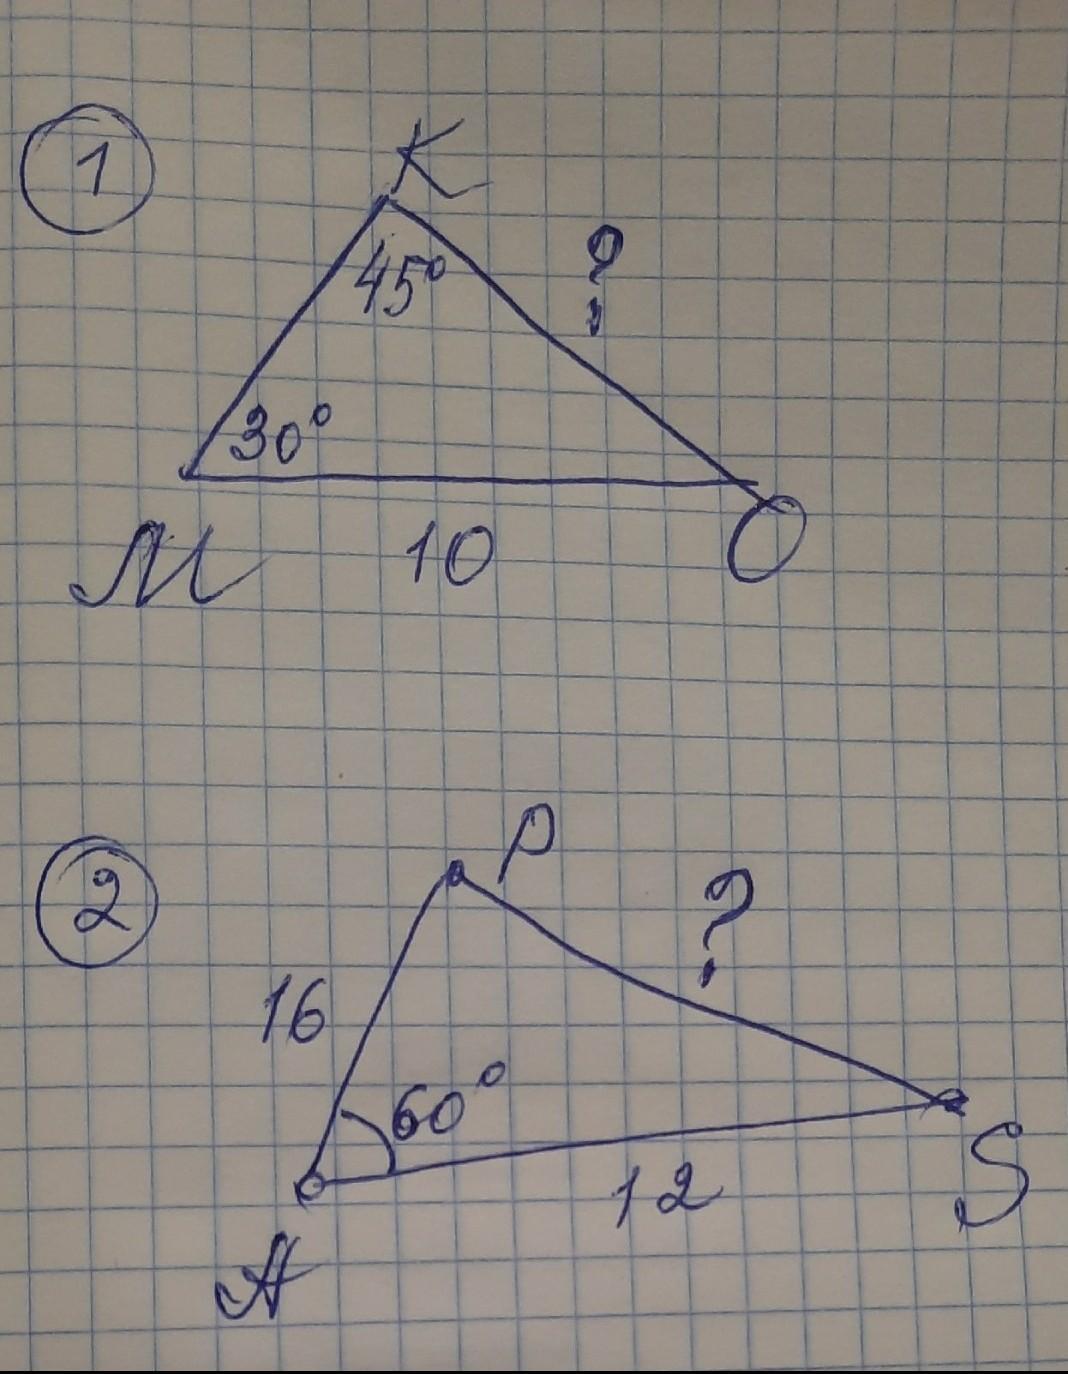 1
K
?
45°
30°
M
10
O
2
P
?
16
60°
12
S
A